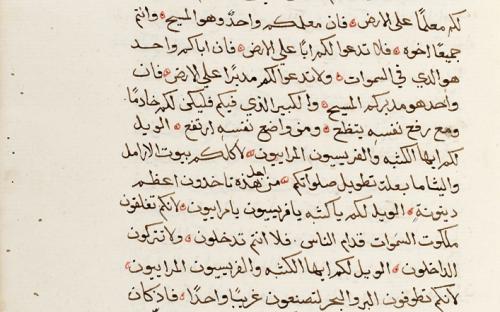 لكم معلمًا علي الارض ۞ فان معلمكم واحدٌ وهو المسيح ۞ وانتم
جميعًا اخوه ۞ فلا تدعوا لكم ابًا علي الارض ۞ فان اباكم واحد
هو الذي في السموات ۞ ولا تدعوا لكم مدبرًا علي الارض ۞ فان
واحد هو مدبركم المسيح ۞ والكبير الذي فيكم فليكن لكم خادمًا.
ومع رفع نفسه يتظع ۞ ومن واضع نفسه ارتفع ۞ الويل
لكم ايها الكتبه والفريسيون المراييون ۞ لاكلكم بيوت الارامل
والیتاما بعلة تطويل صلواتكم ۞ من اهل هذه تاخدون اعظم
دينونة ۞ الويل لكم ياكتبه يافريسيون يامراييون ۞ لانكم تغلقون
ملكوت السموات قدام الناس ۰ فلا انتم تدخلون ۞ ولا تتركون
الداخلون ۞ الويل لكم ايها الكتبه والفريسيون المراييون ۞
لانكم تطوفون البر والبحر لتصنعون غريبًا واحدًا ۞ فاذ كان